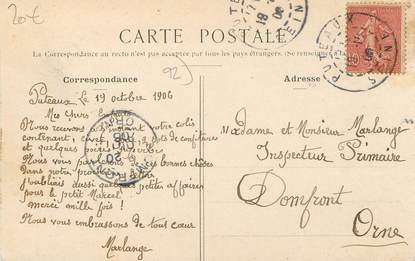 20€
CARTE POSTALE
La Correspondance au recto n'est pas acceptée par tous les pays étrangers. (Se renseigner à la
92)
Correspondance
Adresse
Puteaux le 19 octobre 1906
Mes Chers
Nous recevons à l'instant votre colis
contenant, 4 pots de confitures
et quelques
Nous vous bonnes choses
Dans notre
J'oubliais aussi petites affaires
pour le petit Marcel
merci mille fois!
Nous vous embrassons de tout cœur
Marlange
Madame et Monsieur Marlange
Inspecteur Primaire
Domfront
Orne
PUTEAUX